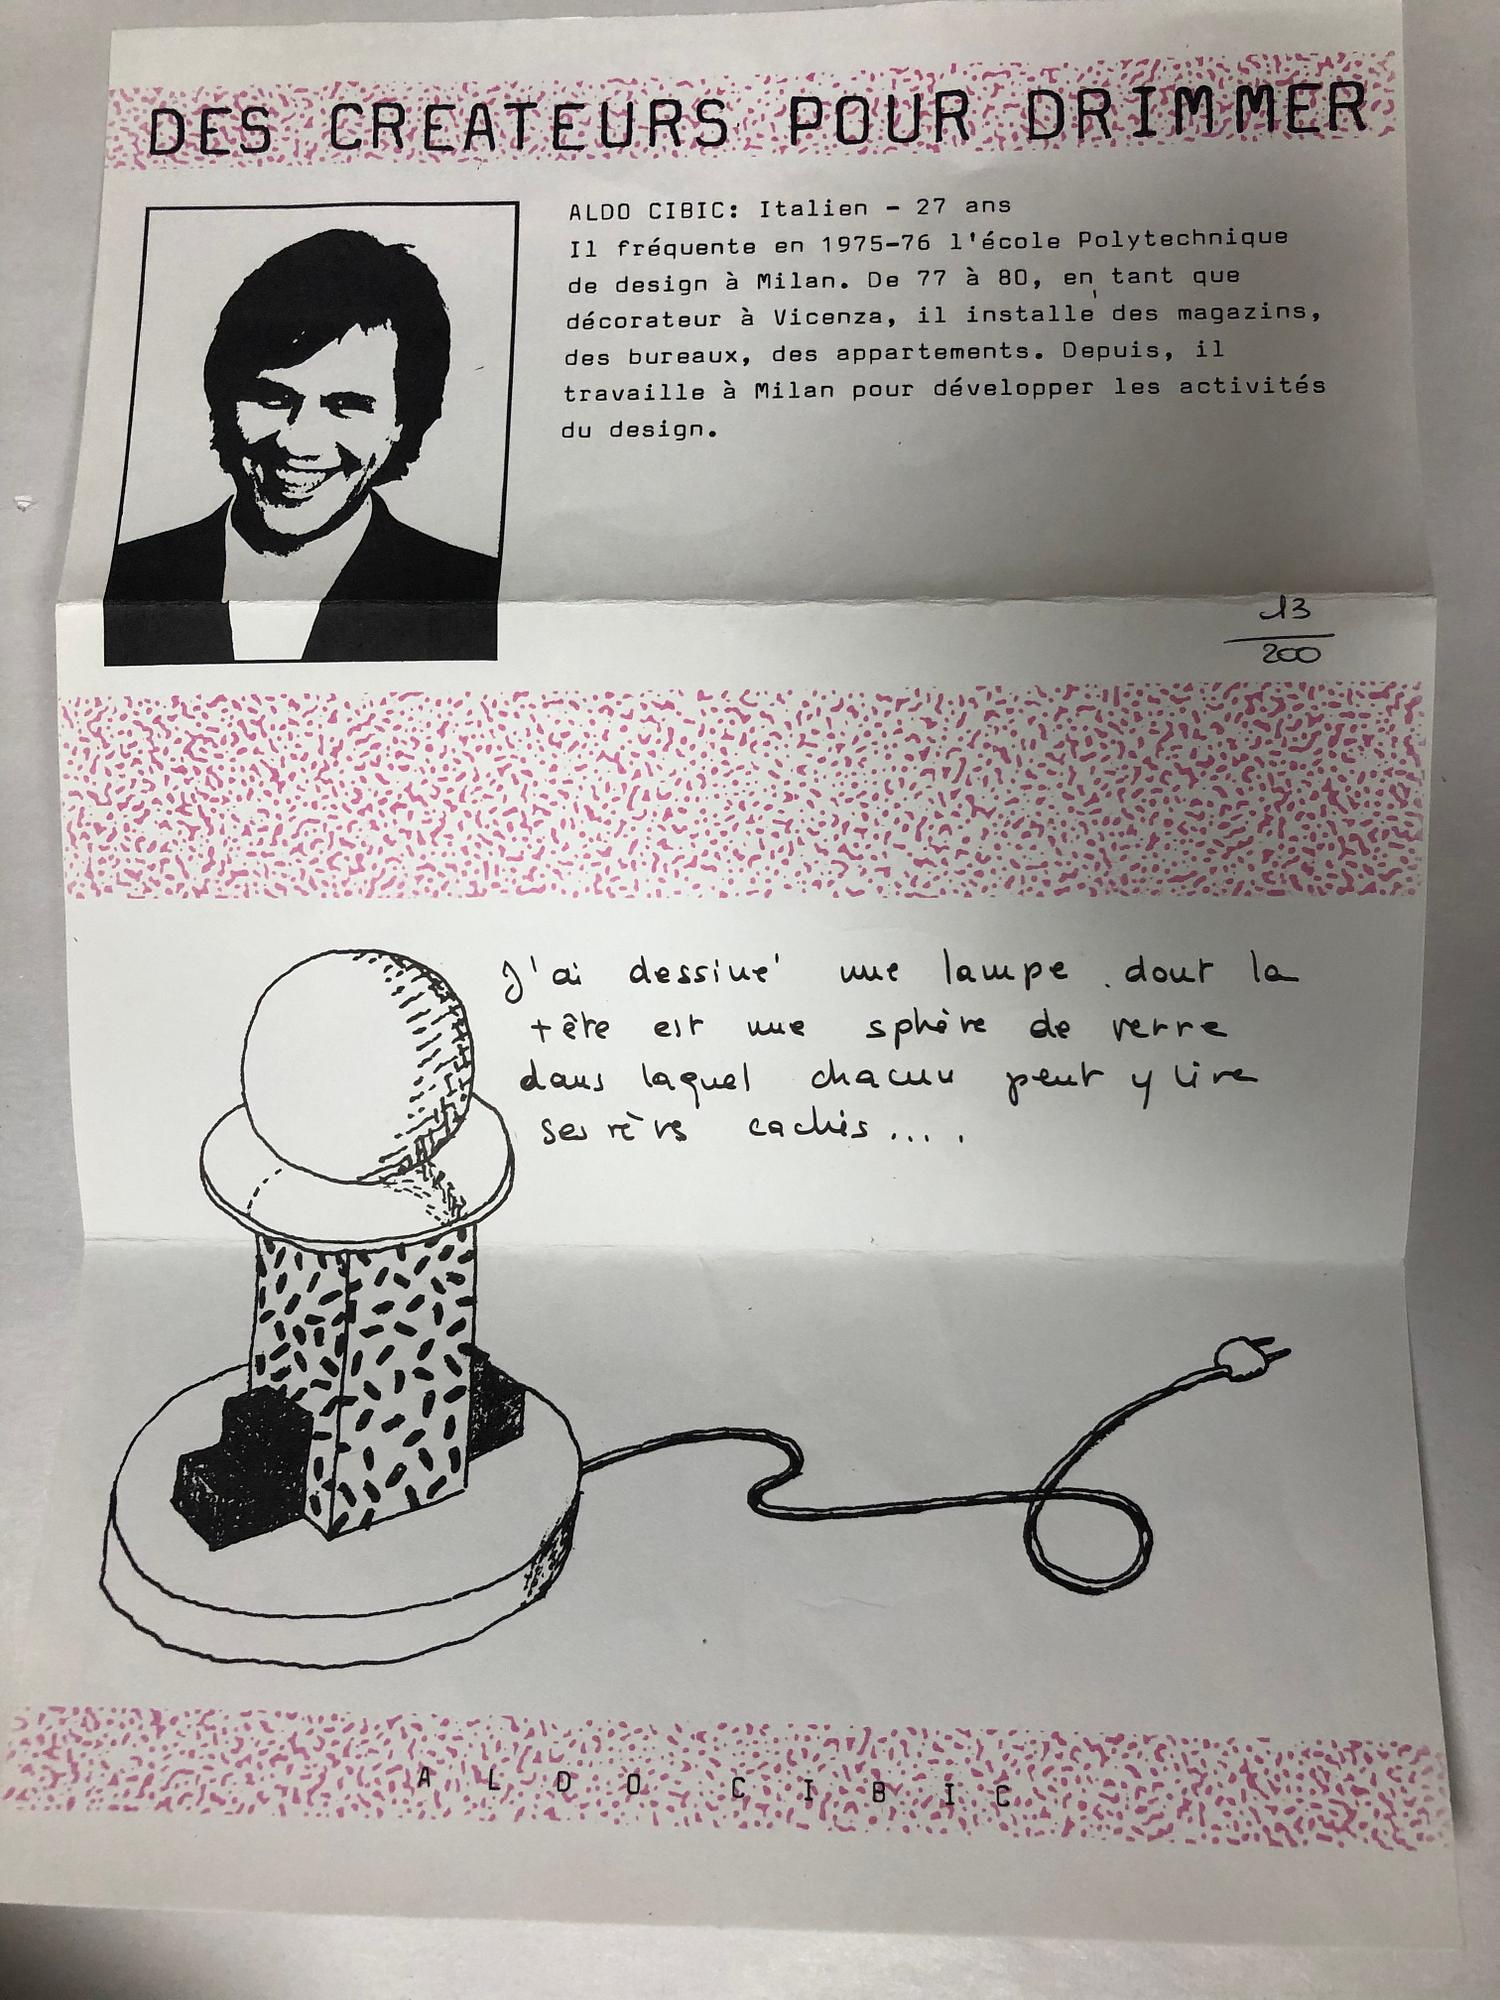 DES CREATEURS POUR DRIMMER
ALDO CIBIC: Italien - 27 ans
Il fréquente en 1975-76 l'école Polytechnique
de design à Milan. De 77 à 80, en tant que
décorateur à Vicenza, il installe des magazins,
des bureaux, des appartements. Depuis, il
travaille à Milan pour développer les activités
du design.
13
200
J'ai dessiné une lampe dont la
tête est une sphère de verre
dans laquel chacun peut y lire
ses rèvs cachés....
ALDO CIBIC